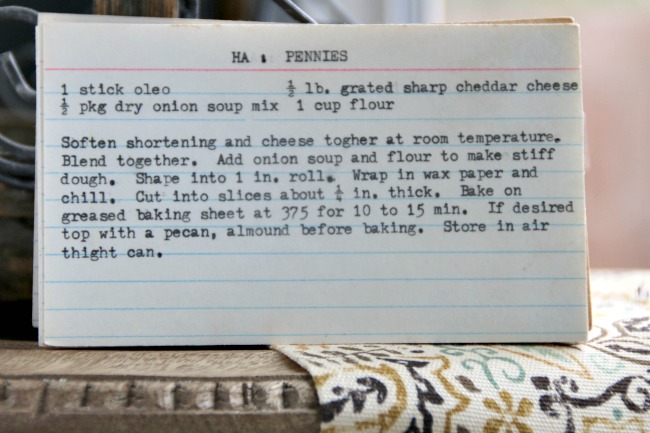 HA ' PENNIES
1 stick oleo ½ lb. grated sharp cheddar cheese
½ pkg dry onion soup mix 1 cup flour
Soften shortening and cheese togher at room temperature.
Blend together. Add onion soup and flour to make stiff
dough. Shape into 1 in. roll. Wrap in wax paper and
chill. Cut into slices about ¼ in. thick. Bake on
greased baking sheet at 375 for 10 to 15 min. If desired
top with a pecan, almound before baking. Store in air
thight can.